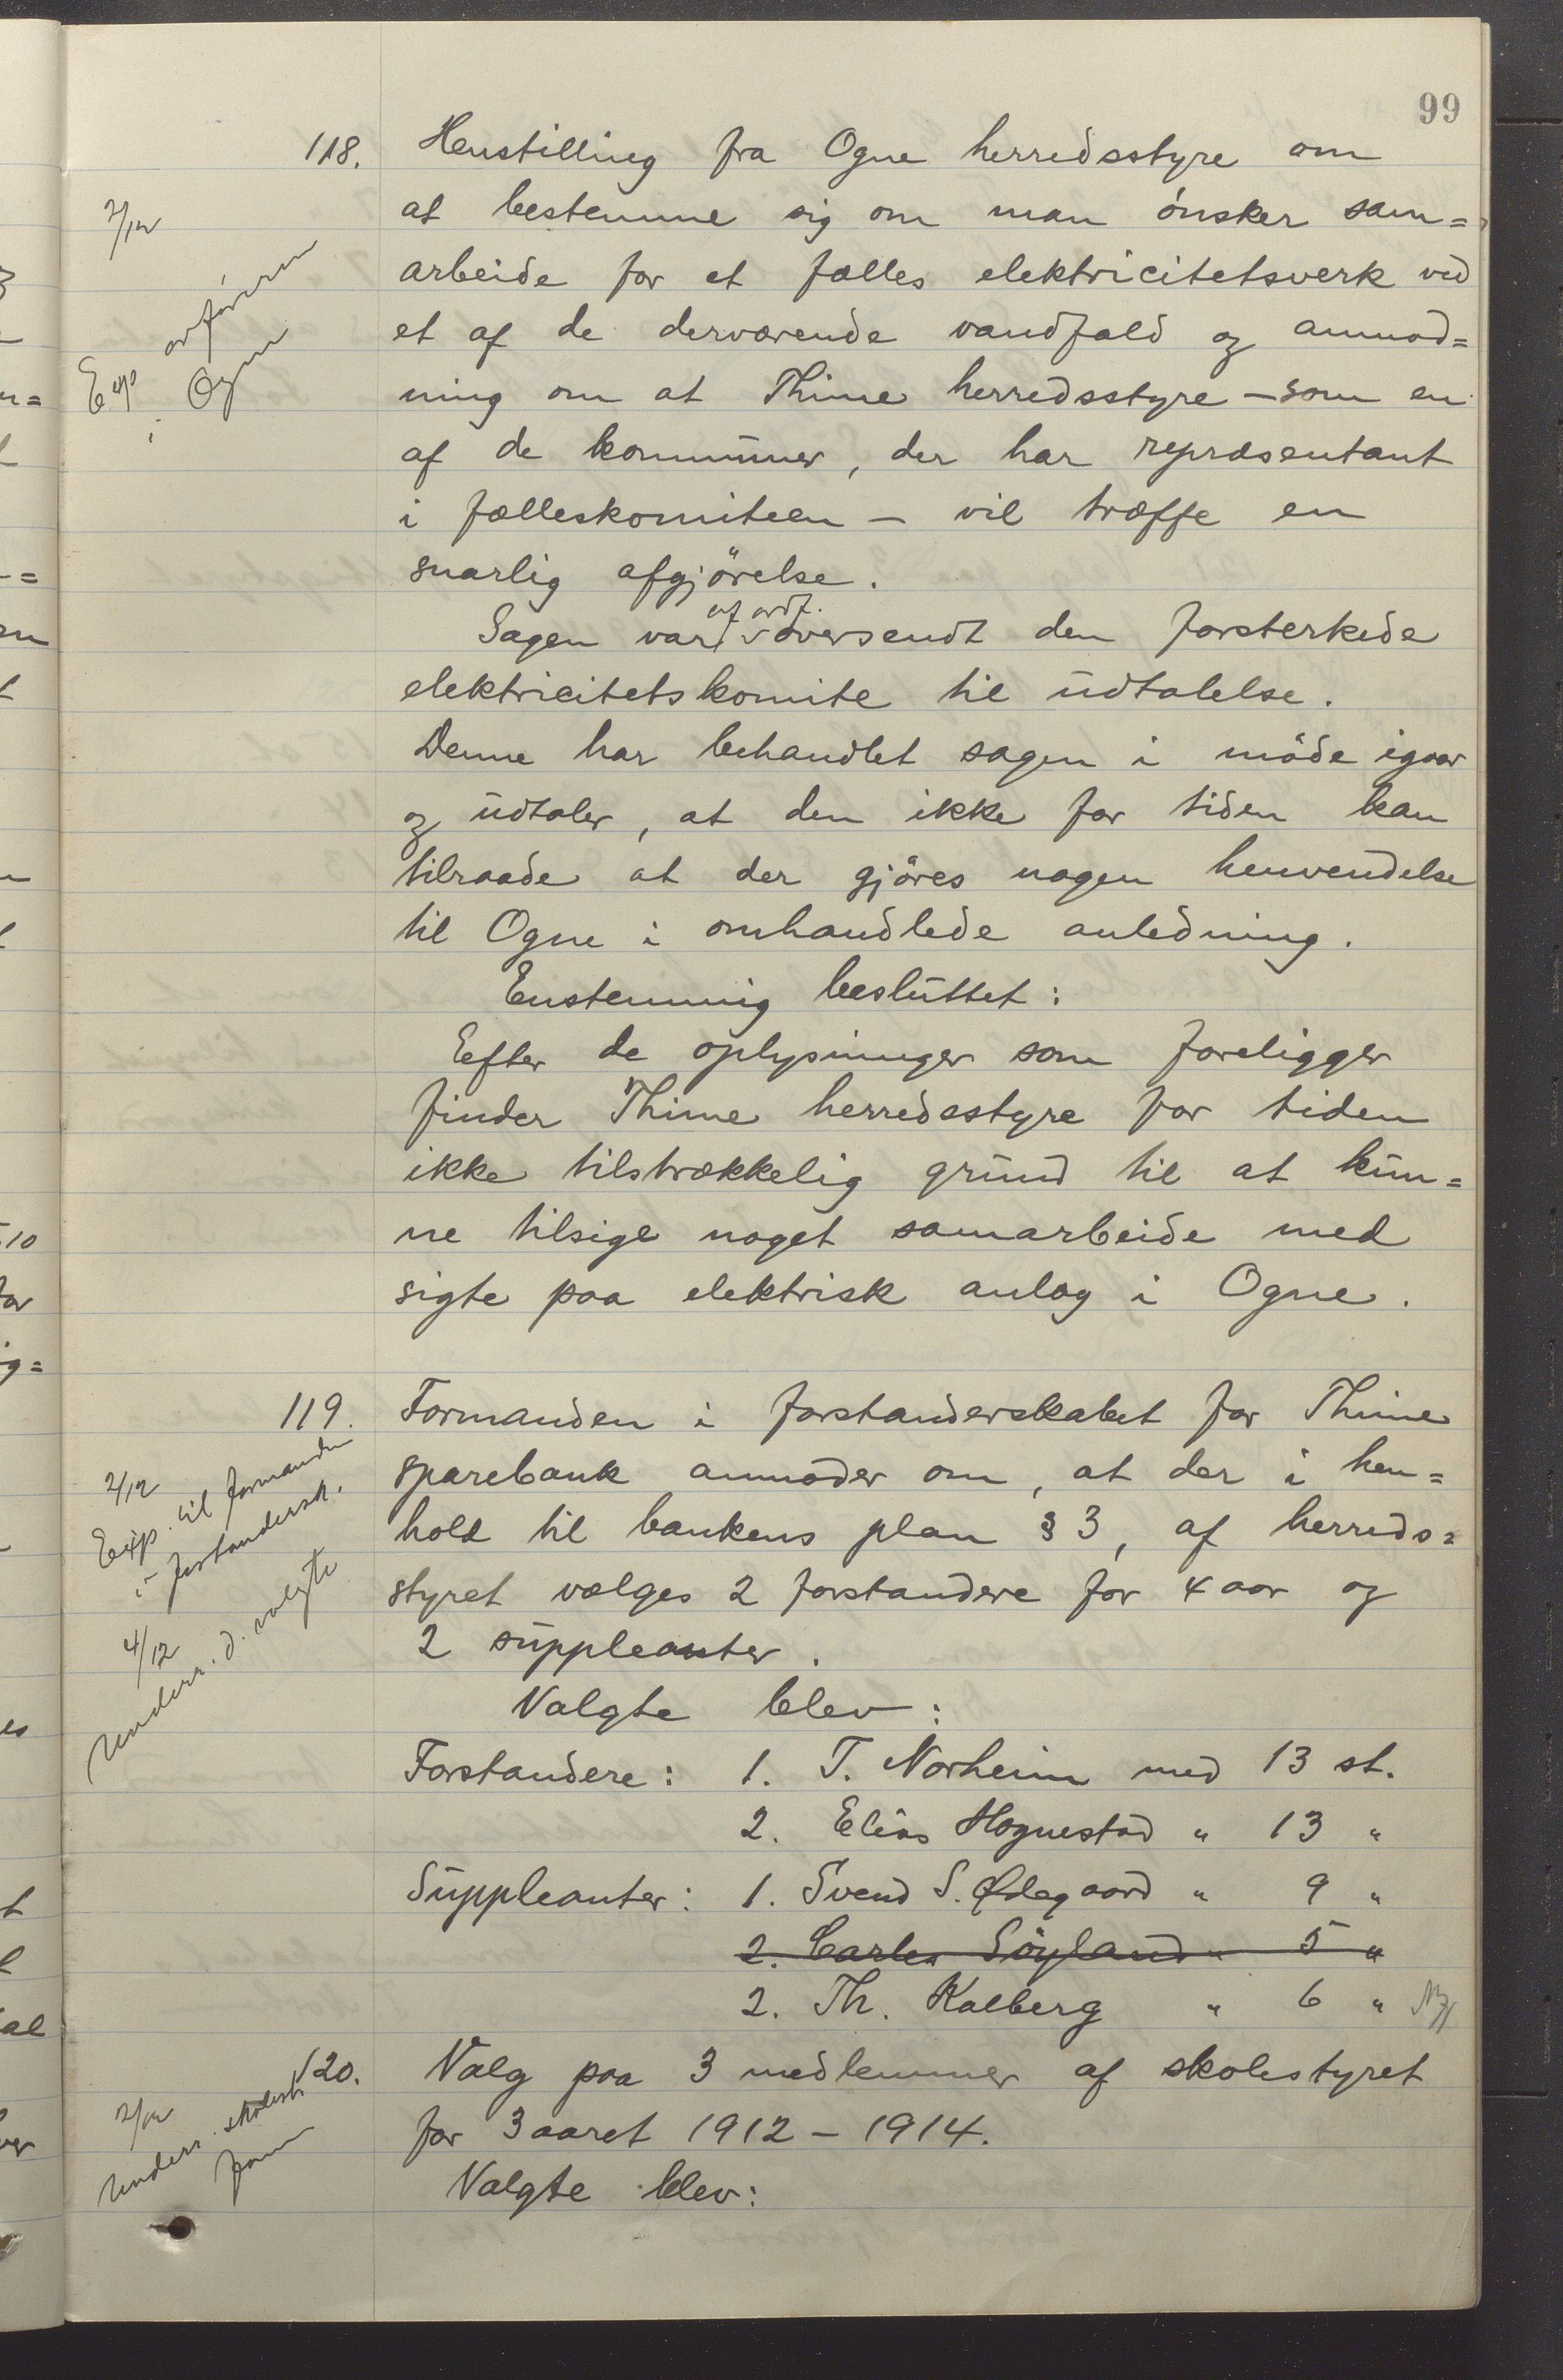 99
118. Henstilling fra Ogne herredsstyre om
2/12
at bestemme sig om man önsker sam=
arbeide for et fælles elektricitetsverk ved
et af de derværende vandfald og anmod=
Exp. ordföreren
i Ogne
ning om at Thime herredsstyre – som en
af de kommuner, der har repræsentant
i fælleskomiteen – vil træffe en
snarlig afgjörelse.
af ordf.
Sagen var oversendt den forsterkede
elektricitetskomite til udtalelse.
Denne har behandlet sagen i möde igaar
og udtaler, at den ikke for tiden kan
tilraade at der gjöres nogen henvendelse
til Ogne i omhandlede anledning.
Enstemmig besluttet:
Efter de oplysninger som foreligger
finder Thime herredsstyre for tiden
ikke tilstrækkelig grund til at kun=
ne tilsige noget samarbeide med
sigte paa elektrisk anlæg i Ogne.
119. Formanden i forstanderskabet for Thime
2/12
Exp. til formanden
i forstandersk.
sparebank anmoder om, at der i hen=
hold til bankens plan § 3, af herreds=
styret vælges 2 forstandere for 4 aar og
4/12
Underr. d. valgte
2 suppleanter.
Valgte blev:
Forstandere: 1. T. Norheim med 13 st.
2. Elias Hognestad " 13 "
Suppleanter: 1. Svend S. Ødegaard " 9 "
2. Carl Söyland " 5 "
2. Th. Kalberg " 6 "
120. Valg paa 3 medlemmer af skolestyret
2/12
Underr. skolest.
form
for 3 aaret 1912 – 1914.
Valgte blev: